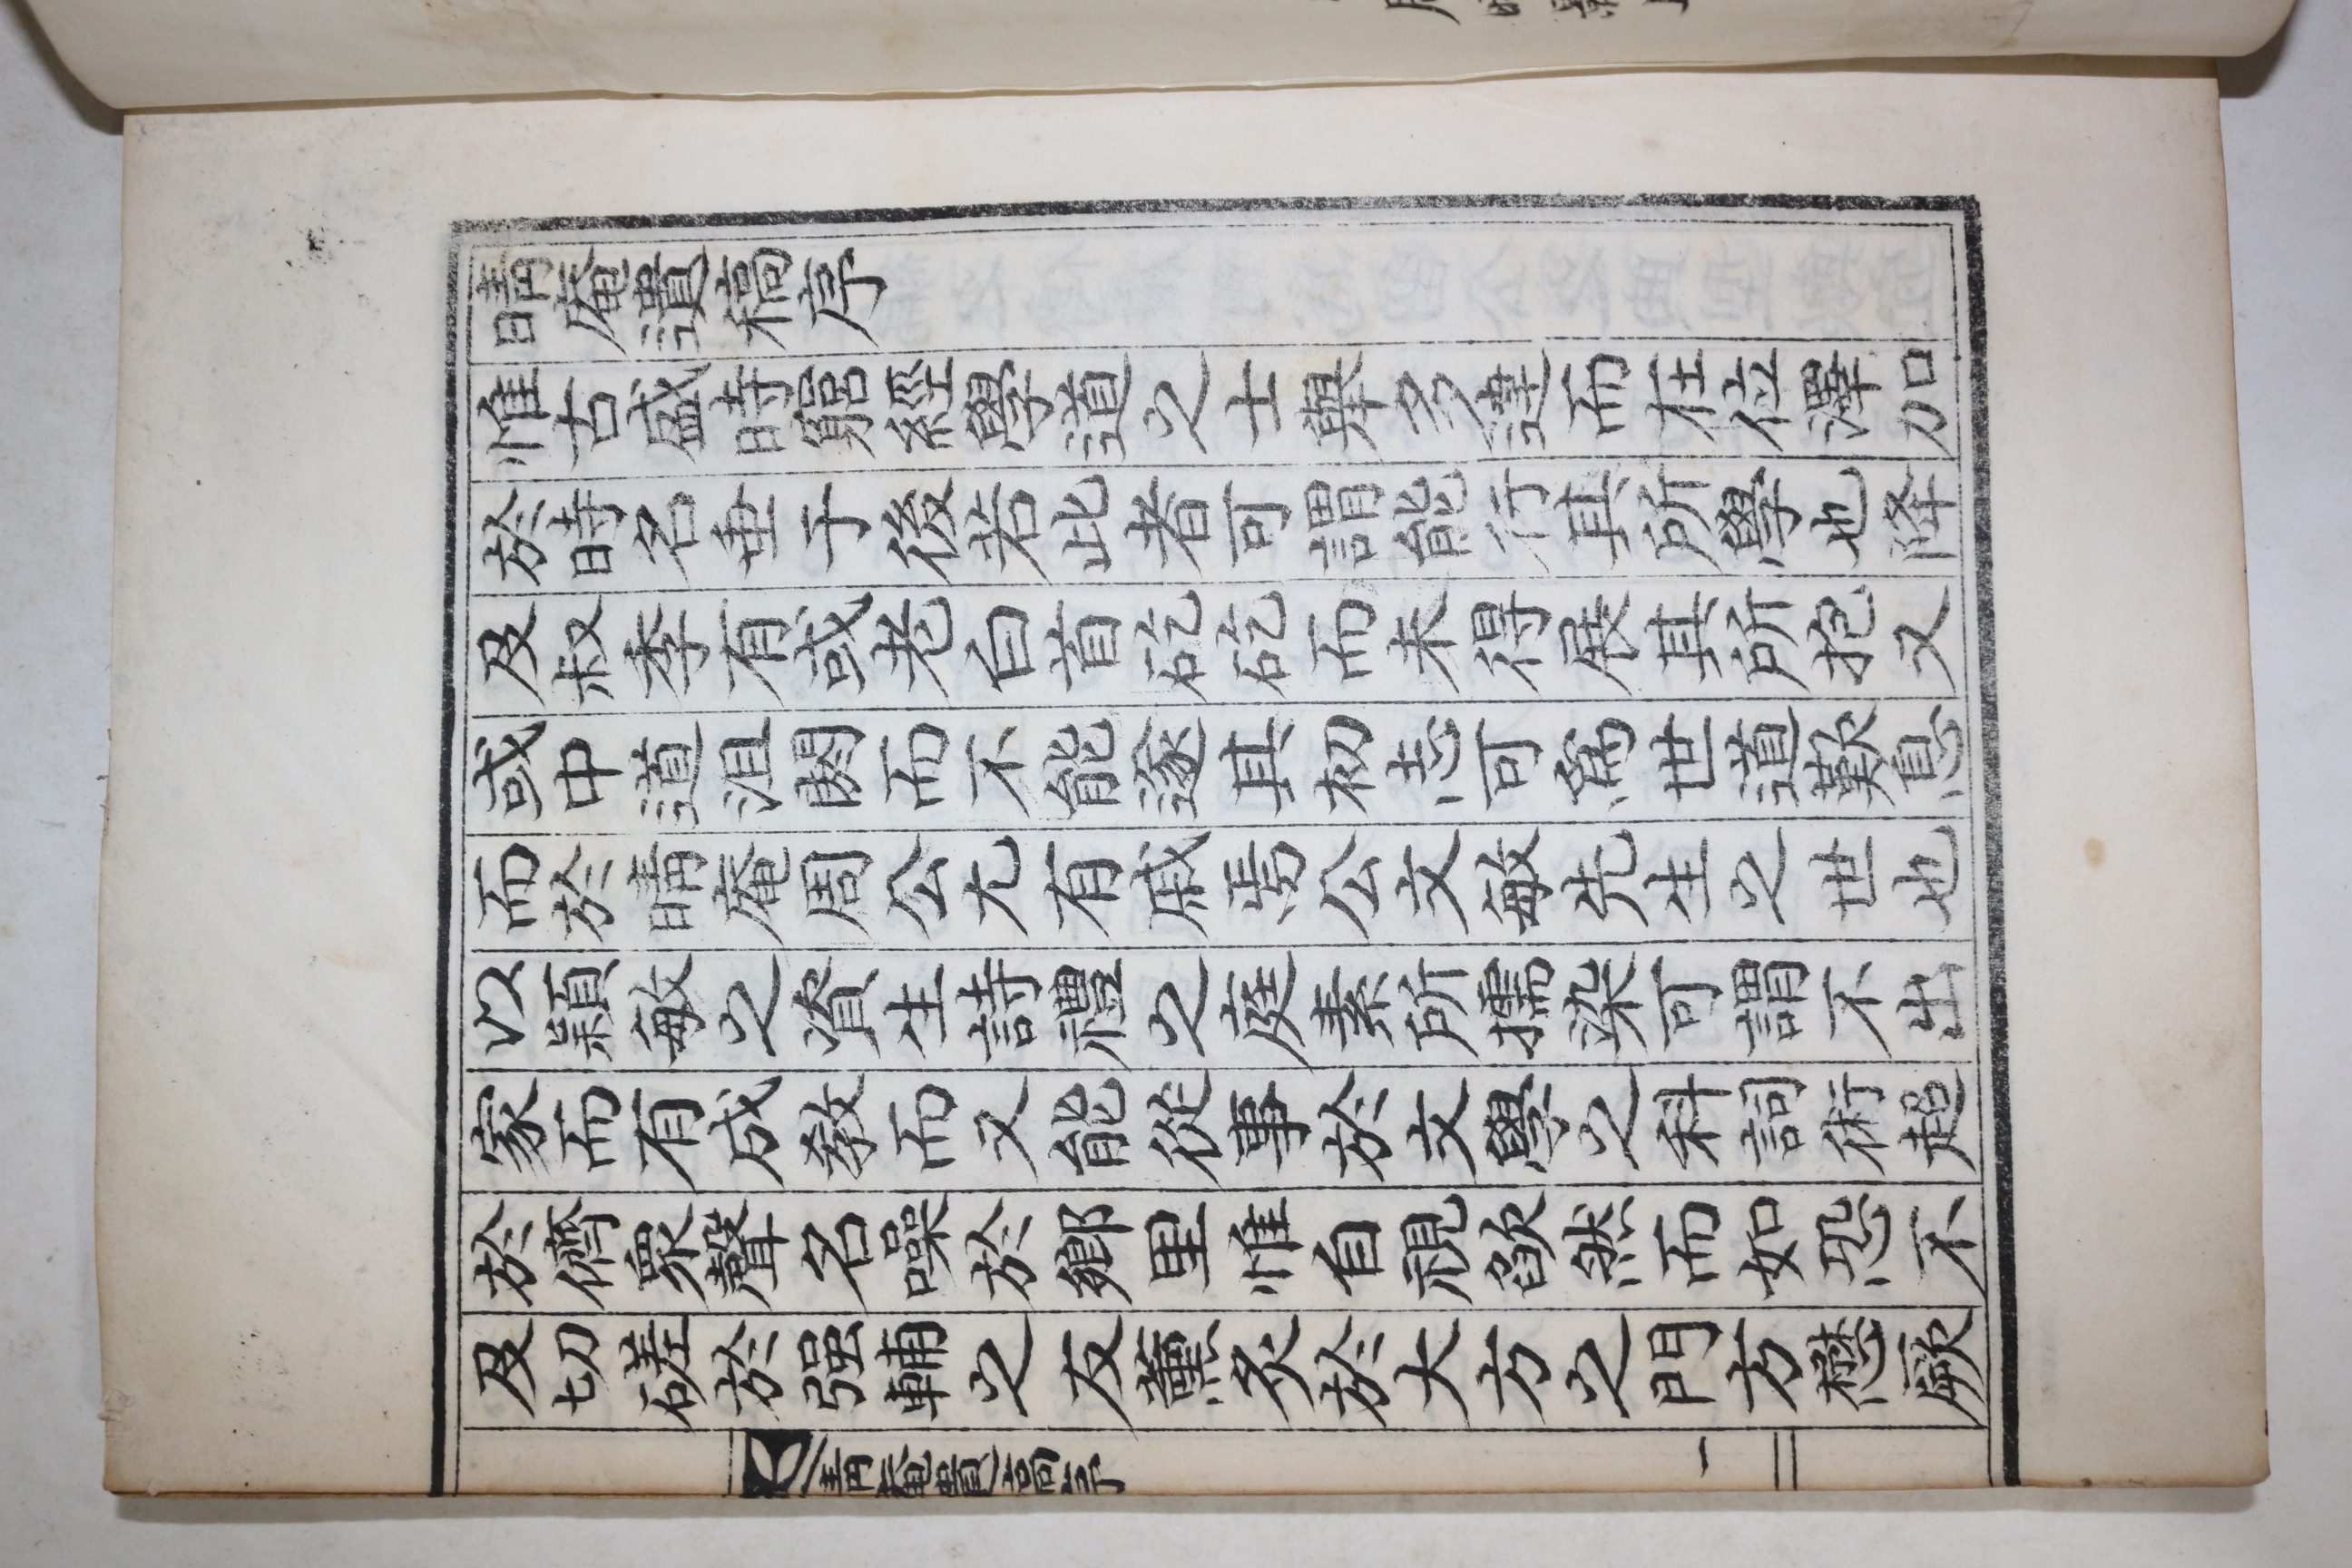 晴庵遺稿序
惟古盛時窮經學道之士舉多達而在位澤加
於時名垂于後若此者可謂能行其所學也降
及叔季有或老白首矻矻而未得展其所抱又
或中道沮閼而不能遂其初志可爲世道歎息
而於晴庵周公尤有戚焉公文敏先生之世也
以穎敏之資生詩禮之庭素所擩染可謂不出
家而有成教而又能從事於文學之科詞術超
於儕衆聲名噪於鄉里惟自視欿然而如恐不
及切磋於强輔之友薰炙於大方之門方懋厥
晴庵遺稿序
一